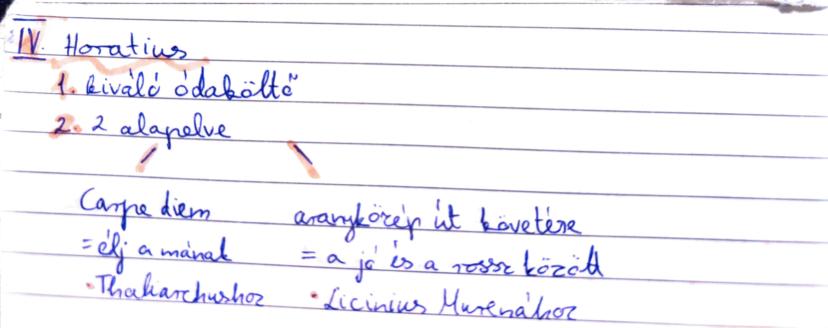 IV. Horatius
1. kiváló ódaköltő
2. 2 alapelve
Carpe diem
= élj a mának
• Thaliarchushoz
aranyközép út követése
= a jó és a rossz között
• Licinius Murenához